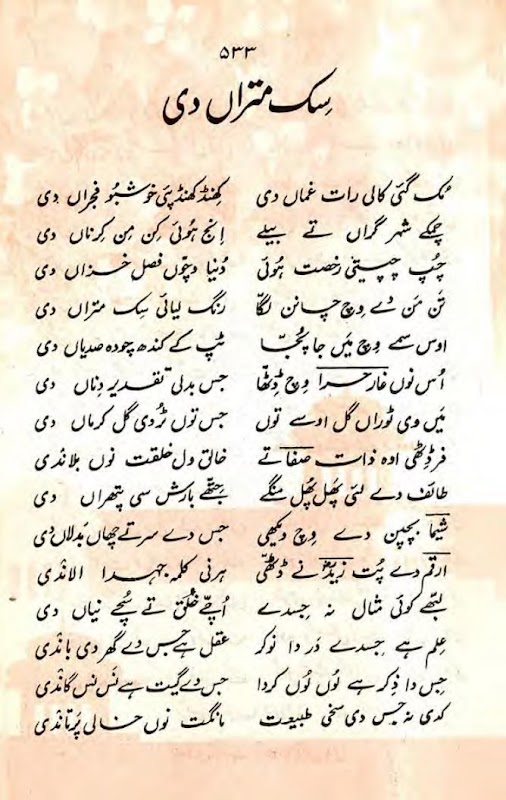 ۵۳۳
سِک متراں دی
مُک گئی کالی رات غماں دی کھِنڈ کھنڈ پئی خوشبو فجراں دی
چمکے شہر گراں تے بیلے اِنج ہوئی کِن مِن کِرناں دی
چُپ چپیتی رخصت ہوئی دُنیا وچّوں فصل خزاں دی
تَن مَن دے وِچ چانن لگّا رنگ لیائی سِک متراں دی
اوس سمے وِچ مَیں جا پُجّا ٹپ کے کندھ چودہ صدیاں دی
اُس نوں غارِ حرا وچ ڈِٹھّا جس بدلی تقدیر دِناں دی
مَیں وی ٹوراں گل اوسے توں جس توں ٹُردی گل کرماں دی
فر ڈِٹھی اوہ ذات صفا تے خالق ول خلقت نوں بلاندی
طائف دے لئی پھَل پھُل منگے جتھے بارش سی پتھراں دی
شیما بچپن دے وچ ویکھی جس دے سر تے چھاں بَدلاں دی
ارقم دے پُت زیدؓ نے ڈِٹھّی ہرنی کلمہ جہدا الاندی
لبھے کوئی مثال نہ جسدے اُچّے خَلق تے سُچّے نیاں دی
عِلم ہے جسدے دَر دا نوکر عقل ہے جس دے گھر دی باندی
جِس دا ذِکر ہے لُوں لُوں کردا جس دے گیت ہے نَس نَس گاندی
کدی نہ جس دی سخی طبیعت مانگت نوں خالی پرتاندی